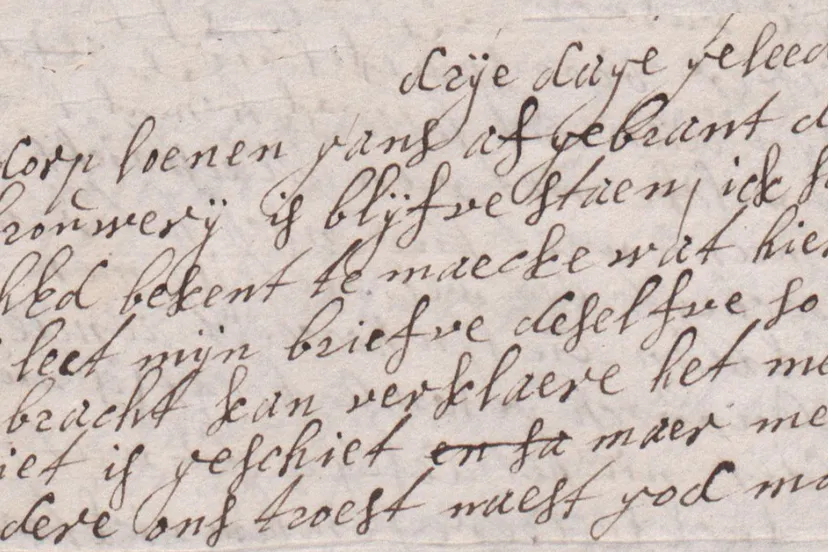 drije dage geleed
dorp loenen gans af gebrant d
brouwerij is blijfve staen, ick s
hEd bekent te maecke wat hier
leet mijn briefve deselfve so
bracht kan verklaere het me
iet is geschiet en sa maer me
dere ons troest naest god ma